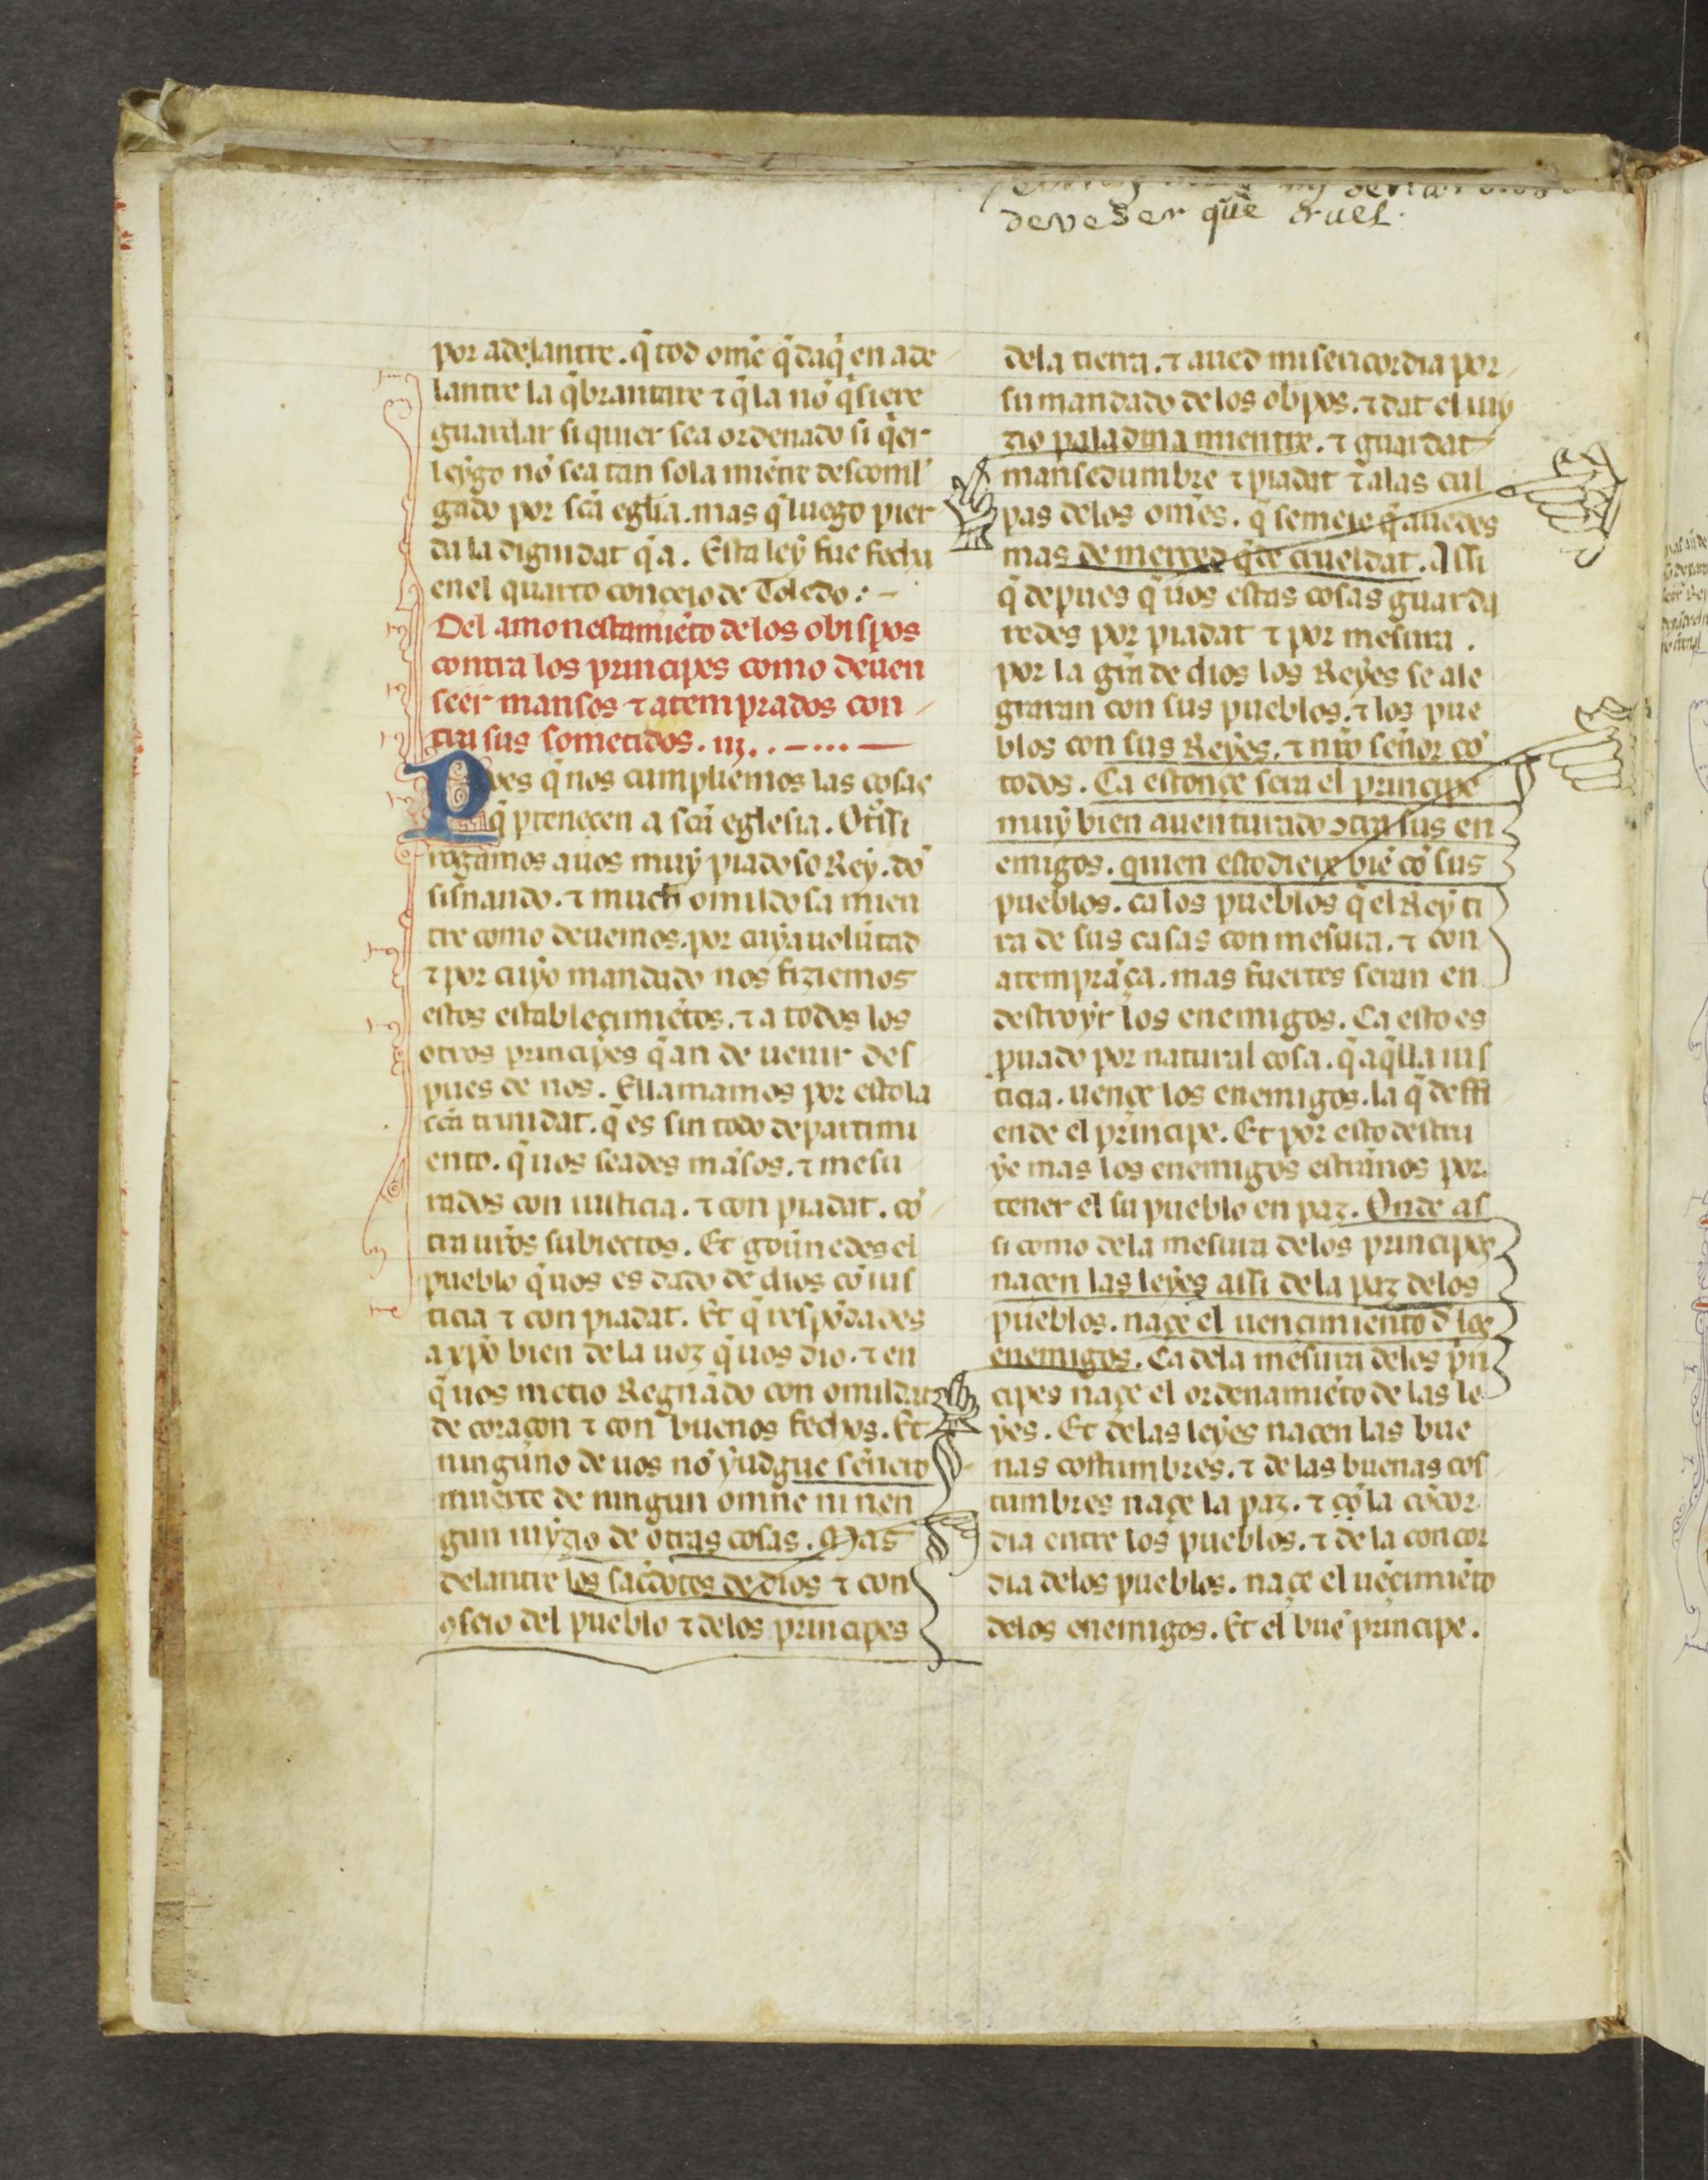 deveser què cruel.
por adelantre. q̃ tod omẽ q̃ daq̃ en ade
lantre la q̃brantare ⁊ q̃ la nõ q̃siere
guardar si quier sea ordenado si q̃er
leẏgo nõ sea tan sola miẽtre descoml̃
gado por sc̃a eglia. mas q̃ luego pier
da la dignidat q̃ a. Esta leẏ fue fecha
en el quarto conçeio de Toledo: –
Del amonestamiẽto de los obispos
contra los principes como deuen
seer mansos ⁊ atemprados con
tra sus sometidos. iij.
Pues q̃ nos cumpliemos las cosas
q̃ ptenecen a sc̃a eglesia. Otⁱssi
rogamos a uos muẏ piadoso Reẏ. dõ
sisnando. ⁊ much omildosa mien
tre como deuemos. por cuẏa uolũtad
⁊ por cuẏo mandado nos fiziemos
estos establecimiẽtos. ⁊ a todos los
otros principes q̃ an de uenir des
pues de nos. Ellamamos por esto la
sc̃a trinidat. q̃ es sin todo departimi
ento. q̃ uos seades mãsos. ⁊ mesu
rados con iusticia. ⁊ con piadat. cõ
tra ur̃os subiectos. Et gou̾nedes el
pueblo q̃ uos es dado de dios cõ ius
ticia ⁊ con piadat. Et q̃ respõdades
a xp̃o bien de la uoz q̃ uos dio. ⁊ en
q̃ uos metio Regnãdo con omildat
de coraçon ⁊ con buenos fechos. Et
ninguno de uos nõ ẏudgue señero
muerte de ningun omne ni nen
gun iuẏzio de otras cosas. Mas
delantre los sac̃dotes de dios ⁊ con
ɔseio del pueblo ⁊ de los principes
de la tierra. ⁊ aued misericordia por
su mandado de los obpos. ⁊ dat el iuẏ
zio paladina mientre. ⁊ guardat
mansedumbre ⁊ piadat ⁊ a las cul
pas de los omẽs. q̃ semeie q̃ auedes
mas de merced q̃ de crueldat. Assi
q̃ depues q̃ uos estas cosas guarda
redes por piadat ⁊ por mesura.
por la gr̃a de dios los Reẏes se ale
graran con sus pueblos. ⁊ los pue
blos con sus Reẏes. ⁊ nr̃o señor cõ
todos. Ca estonçe sera el principe
muẏ bien auenturado ɔtra sus en
emigos. quien estodiere biẽ cõ sus
pueblos. ca los pueblos q̃ el Reẏ ti
ra de sus casas con mesura. ⁊ con
atemprãça. mas fuertes seran en
destroẏr los enemigos. Ca esto es
puado por natural cosa. q̃ aq̃lla ius
ticia. uençe los enemigos. la q̃ deffi
ende el principe. Et por esto destru
ẏe mas los enemigos estrãnos por
tener el su pueblo en paz. Onde as
si como de la mesura de los principes
nacen las leẏes assi de la paz de los
pueblos. naçe el uencimiento d̃ los
enemigos. Ca de la mesura de los pⁱn
cipes naçe el ordenamiẽto de las le
ẏes. Et de las leẏes nacen las bue
nas costumbres. ⁊ de las buenas cos
tumbres naçe la paz. ⁊ cõ la cõcor
dia entre los pueblos. ⁊ de la concor
dia de los pueblos. naçe el uẽcimiẽto
de los enemigos. Et el buẽ principe.